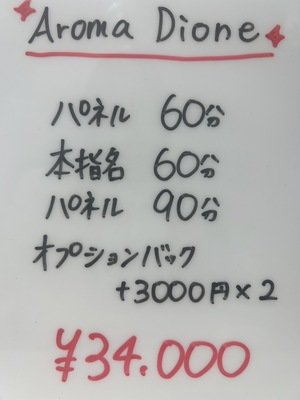 Aroma Dione
パネル 60分
本指名 60分
パネル 90分
オプションバック
+3000円×2
¥34.000